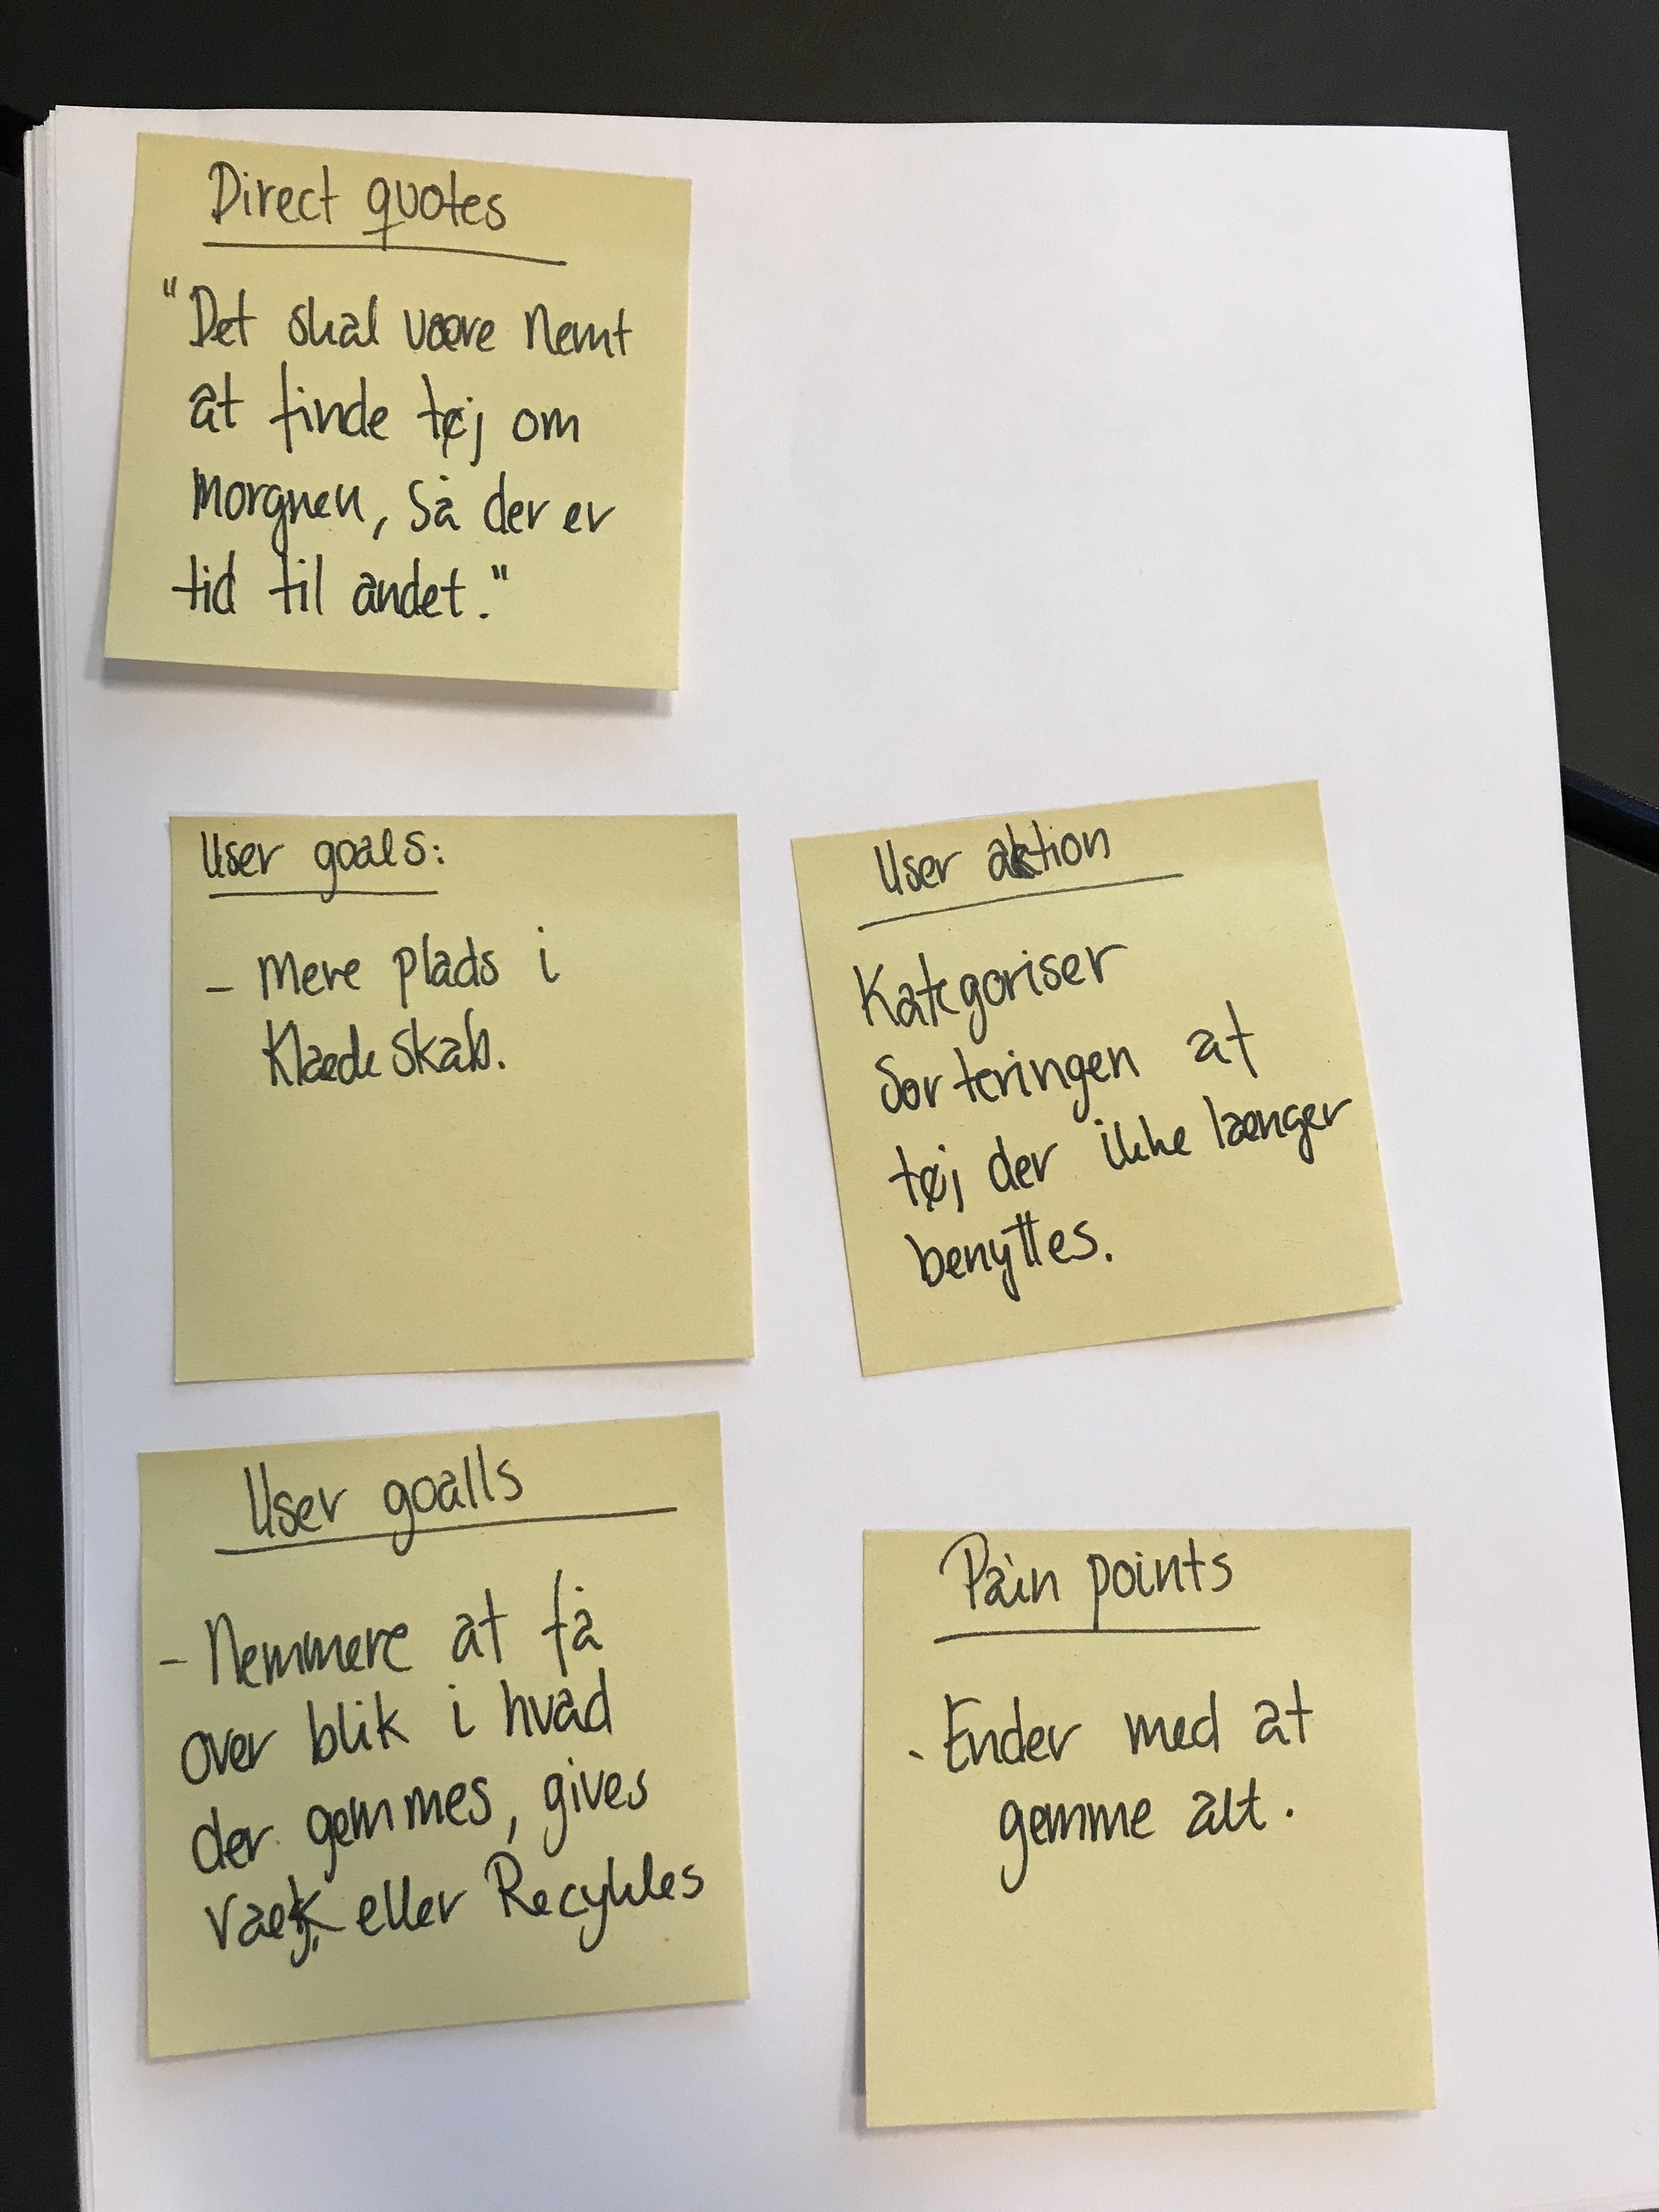 Direct quotes
"Det skal være nemt
at finde tøj om
morgnen, så der er
tid til andet."
User goals:
- Mere plads i
Klædeskab.
User aktion
Kategoriser
Sorteringen at
tøj der ikke længer
benyttes.
User goalls
- Nemmere at få
over blik i hvad
der gemmes, gives
væk, eller Recykles
Pain points
- Ender med at
gemme alt.